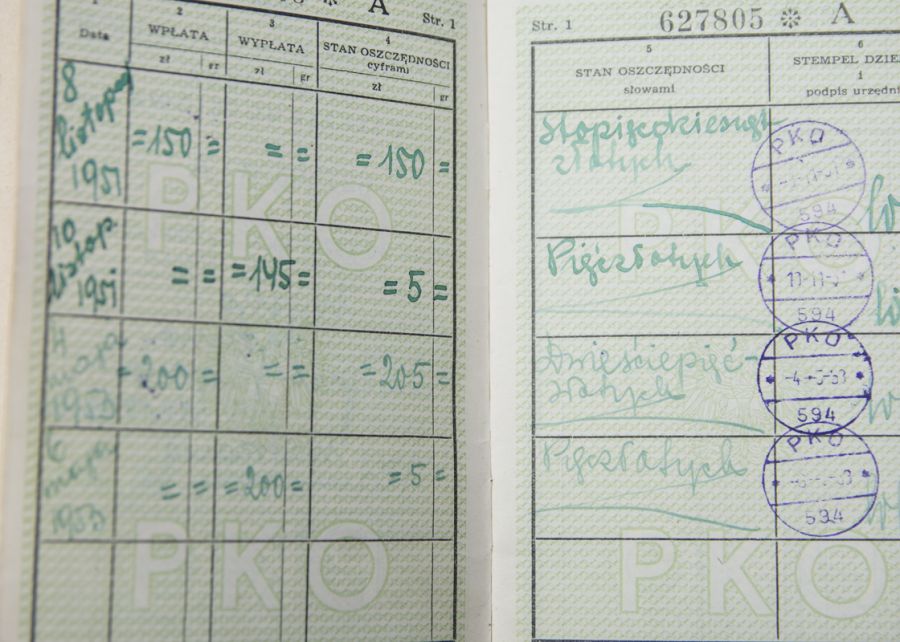 A
Str. 1
1
Data
2
WPŁATA
zł gr
3
WYPŁATA
zł gr
4
STAN OSZCZĘDNOŚCI
cyframi
zł gr
8
listopad
1951
=150 =
= =
=150 =
10
listop.
1951
= =
=145=
=5=
4
maja
1953
=200 =
= =
=205=
6
maja
1953
= =
=200=
=5=
PKO
PKO
Str. 1
627805 ❊ A
5
STAN OSZCZĘDNOŚCI
słowami
6
STEMPEL DZIE
i
podpis urzędni
Stopięćdziesiąt
złotych
PKO
594
Pięćzłotych
PKO
594
Dwieściepięć-
złotych
PKO
-4.-5-53
594
Pięćzłotych
PKO
594
PKO
PKO